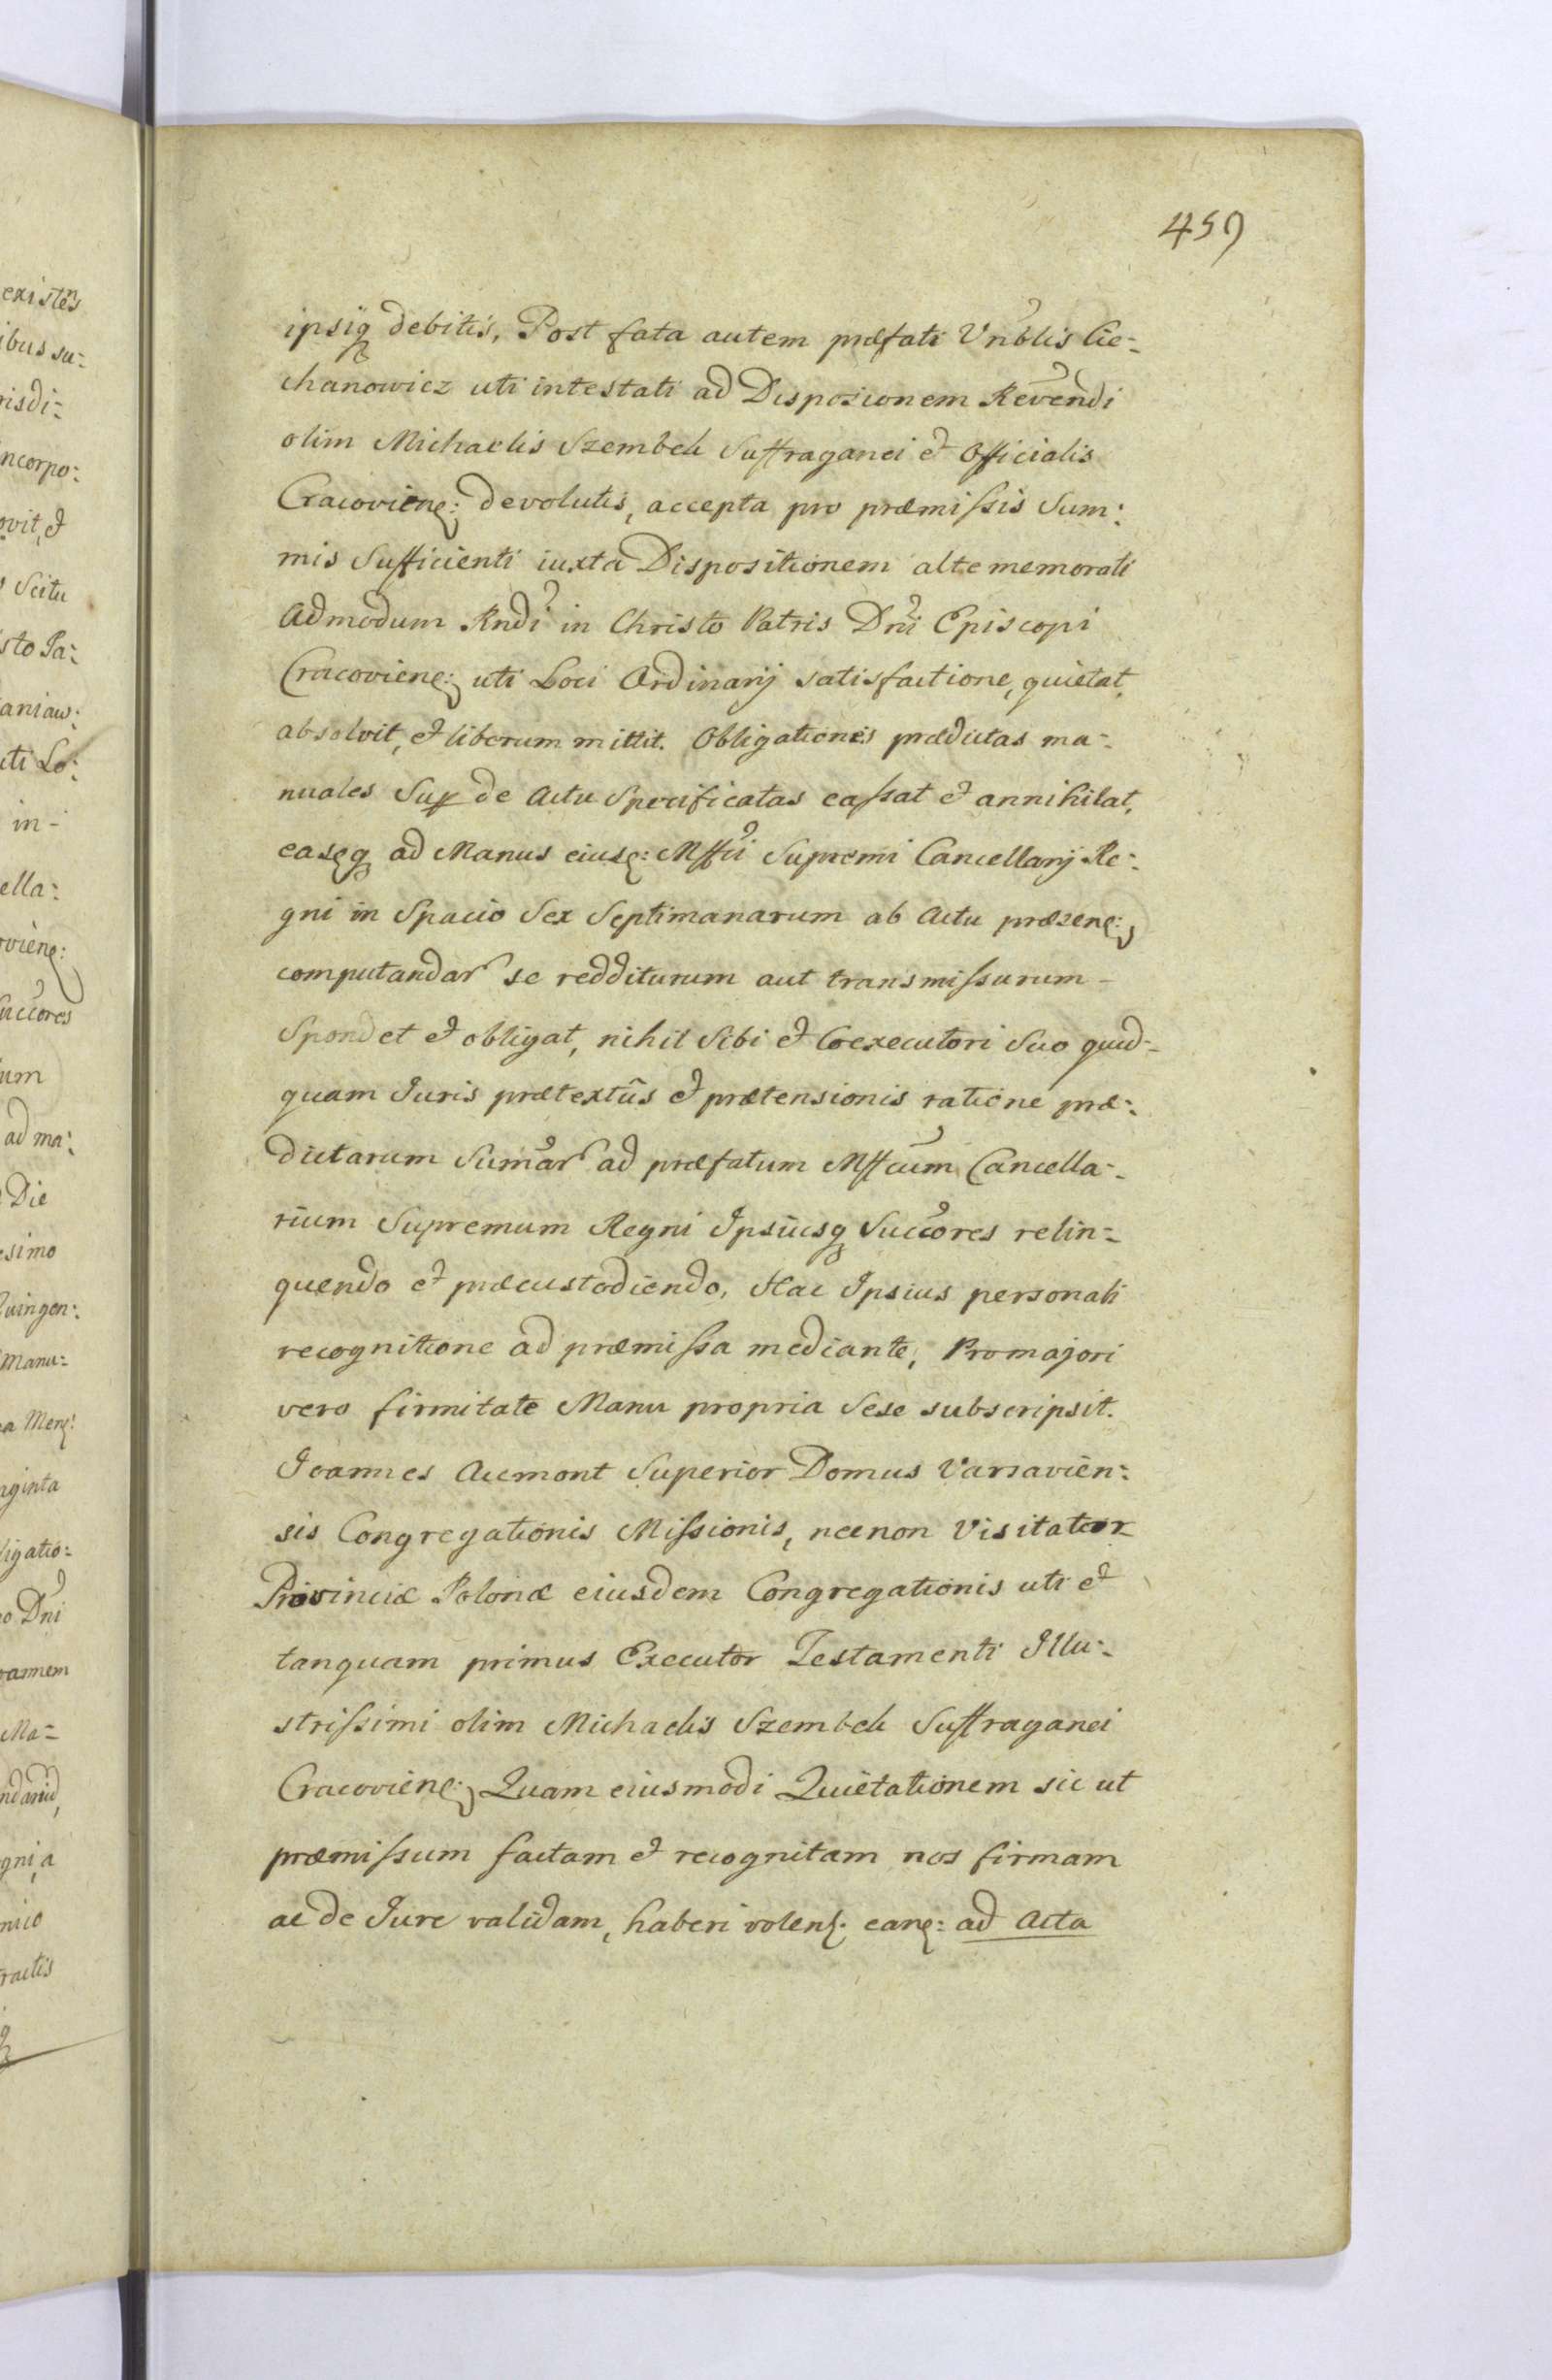 459
ipsiq debitis, Post fata autem præfati Vnblis Cie-
chanowicz uti intestati ad Disposionem Revendi
olim Michaelis Szembek Suffraganei et Officialis
Cracovien: devolutis, accepta pro præmissis Sum:
mis Sufficienti iuxta Dispositionem alte memorati
Admodum Rndi in Christo Patris Dni Episcopi
Cracovien: uti Loci Ordinarij satisfactione, quietat,
absolvit, et liberum mittit. Obligationes prædictas ma-
nuales Sup de Actu Specificatas cassat et annihilat,
easq ad Manus eiusd: Mffci Supremi Cancellarij Re-
gni in Spacio Sex Septimanarum ab Actu præsen:
computandar se redditurum aut transmissurum -
Spondet et obligat, nihil Sibi et Coexecutori Suo quid-
quam Juris prætextûs et prætensionis ratione præ-
dictarum Sumar ad præfatum Mffcum Cancella-
rium Supremum Regni Ipsiusq Succores relin-
quendo et præcustodiendo, Hac Ipsius personali
recognitione ad præmissa mediante, Pro majori
vero firmitate Manu propria Sese subscripsit.
Joannes Aumont Superior Domus Varsavien:
sis Congregationis Missionis, necnon Visitator
Provinciæ Polonæ eiusdem Congregationis uti et
tanquam primus Executor Testamenti Illu-
strissimi olim Michaelis Szembek Suffraganei
Cracovien: Quam eiusmodi Quietationem sic ut
præmissum factam et recognitam nos firmam
ac de Jure validam, haberi volen: eand: ad Acta
existens
ibus su-
risdi-
ncorpo:
ovit, et
Scitu
sto Pa:
aniaw:
uti Lo:
in-
ella:
ovien:
uccores
um
ad ma:
Die
esimo
uingen:
Manu-
Men:
ginta
ligatio-
Dni
oannem
Ma-
gni, a
nico
ractis